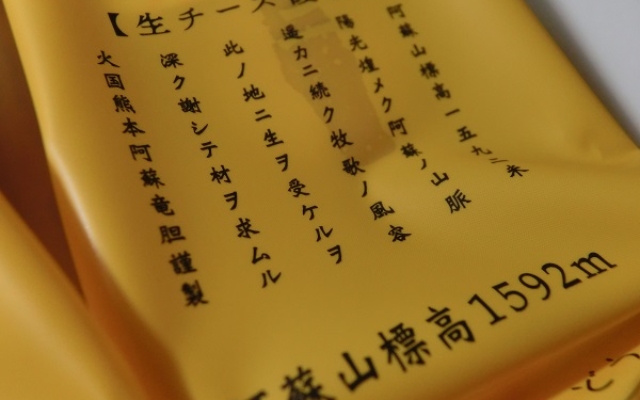 【生チーズ
阿蘇山標高一五九二米
陽光煌メク阿蘇ノ山脈
遥カニ続ク牧歌ノ風容
此ノ地ニ生ヲ受ケルヲ
深ク謝シテ材ヲ求ムル
火国熊本阿蘇竜胆謹製
阿蘇山標高1592m